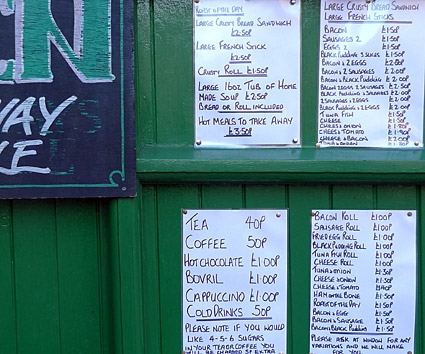 EN
WAY
KE
ROAST OF THE DAY
LARGE CRUSTY BREAD SANDWICH
£2.50P
LARGE FRENCH STICK
£2.50P
CRUSTY ROLL £1.50P
LARGE 16OZ TUB OF HOME
MADE SOUP £2.50P
BREAD OR ROLL INCLUDED
HOT MEALS TO TAKE AWAY
£3.50P
LARGE CRUSTY BREAD SANDWICH
LARGE FRENCH STICKS
BACON £1.50P
SAUSAGES 2 £1.50P
EGGS 2 £1.50P
BLACK PUDDING 3 SLICES £1.50P
BACON & 2 EGGS £2.00P
BACON & 2 SAUSAGES £2.00P
BACON & BLACK PUDDING £2.00P
BACON 2 EGGS 2 SAUSAGES £2.50P
BLACK PUDDING & 2 SAUSAGES £2.00P
2 SAUSAGES & 2 EGGS £2.00P
BLACK PUDDING & 2 EGGS £2.00P
TUNA FISH £1.50P
CHEESE £1.50P
CHEESE & ONION
CHEESE & TOMATO
CHEESE & BACON £2.00P
TUNA & ONION
TEA 40P
COFFEE 50P
HOT CHOCOLATE £1.00P
BOVRIL £1.00P
CAPPUCCINO £1.00P
COLD DRINKS 50P
PLEASE NOTE IF YOU WOULD
LIKE 4-5-6 SUGARS
IN YOUR TEA OR COFFEE YOU
WILL BE CHARGED 5P EXTRA
BACON ROLL £1.00P
SAUSAGE ROLL £1.00P
FRIED EGG ROLL £1.00P
BLACK PUDDING ROLL £1.00P
TUNA FISH ROLL £1.00P
CHEESE ROLL £1.00P
TUNA & ONION £1.30P
CHEESE & ONION £1.30P
CHEESE & TOMATO
HAM ON THE BONE £1.50P
ROAST OF THE DAY £1.50P
BACON & EGG £1.50P
BACON & SAUSAGE £1.50P
BACON & BLACK PUDDING £1.50P
PLEASE ASK AT WINDOW FOR ANY
VARIATIONS AND WE WILL MAKE
FOR YOU